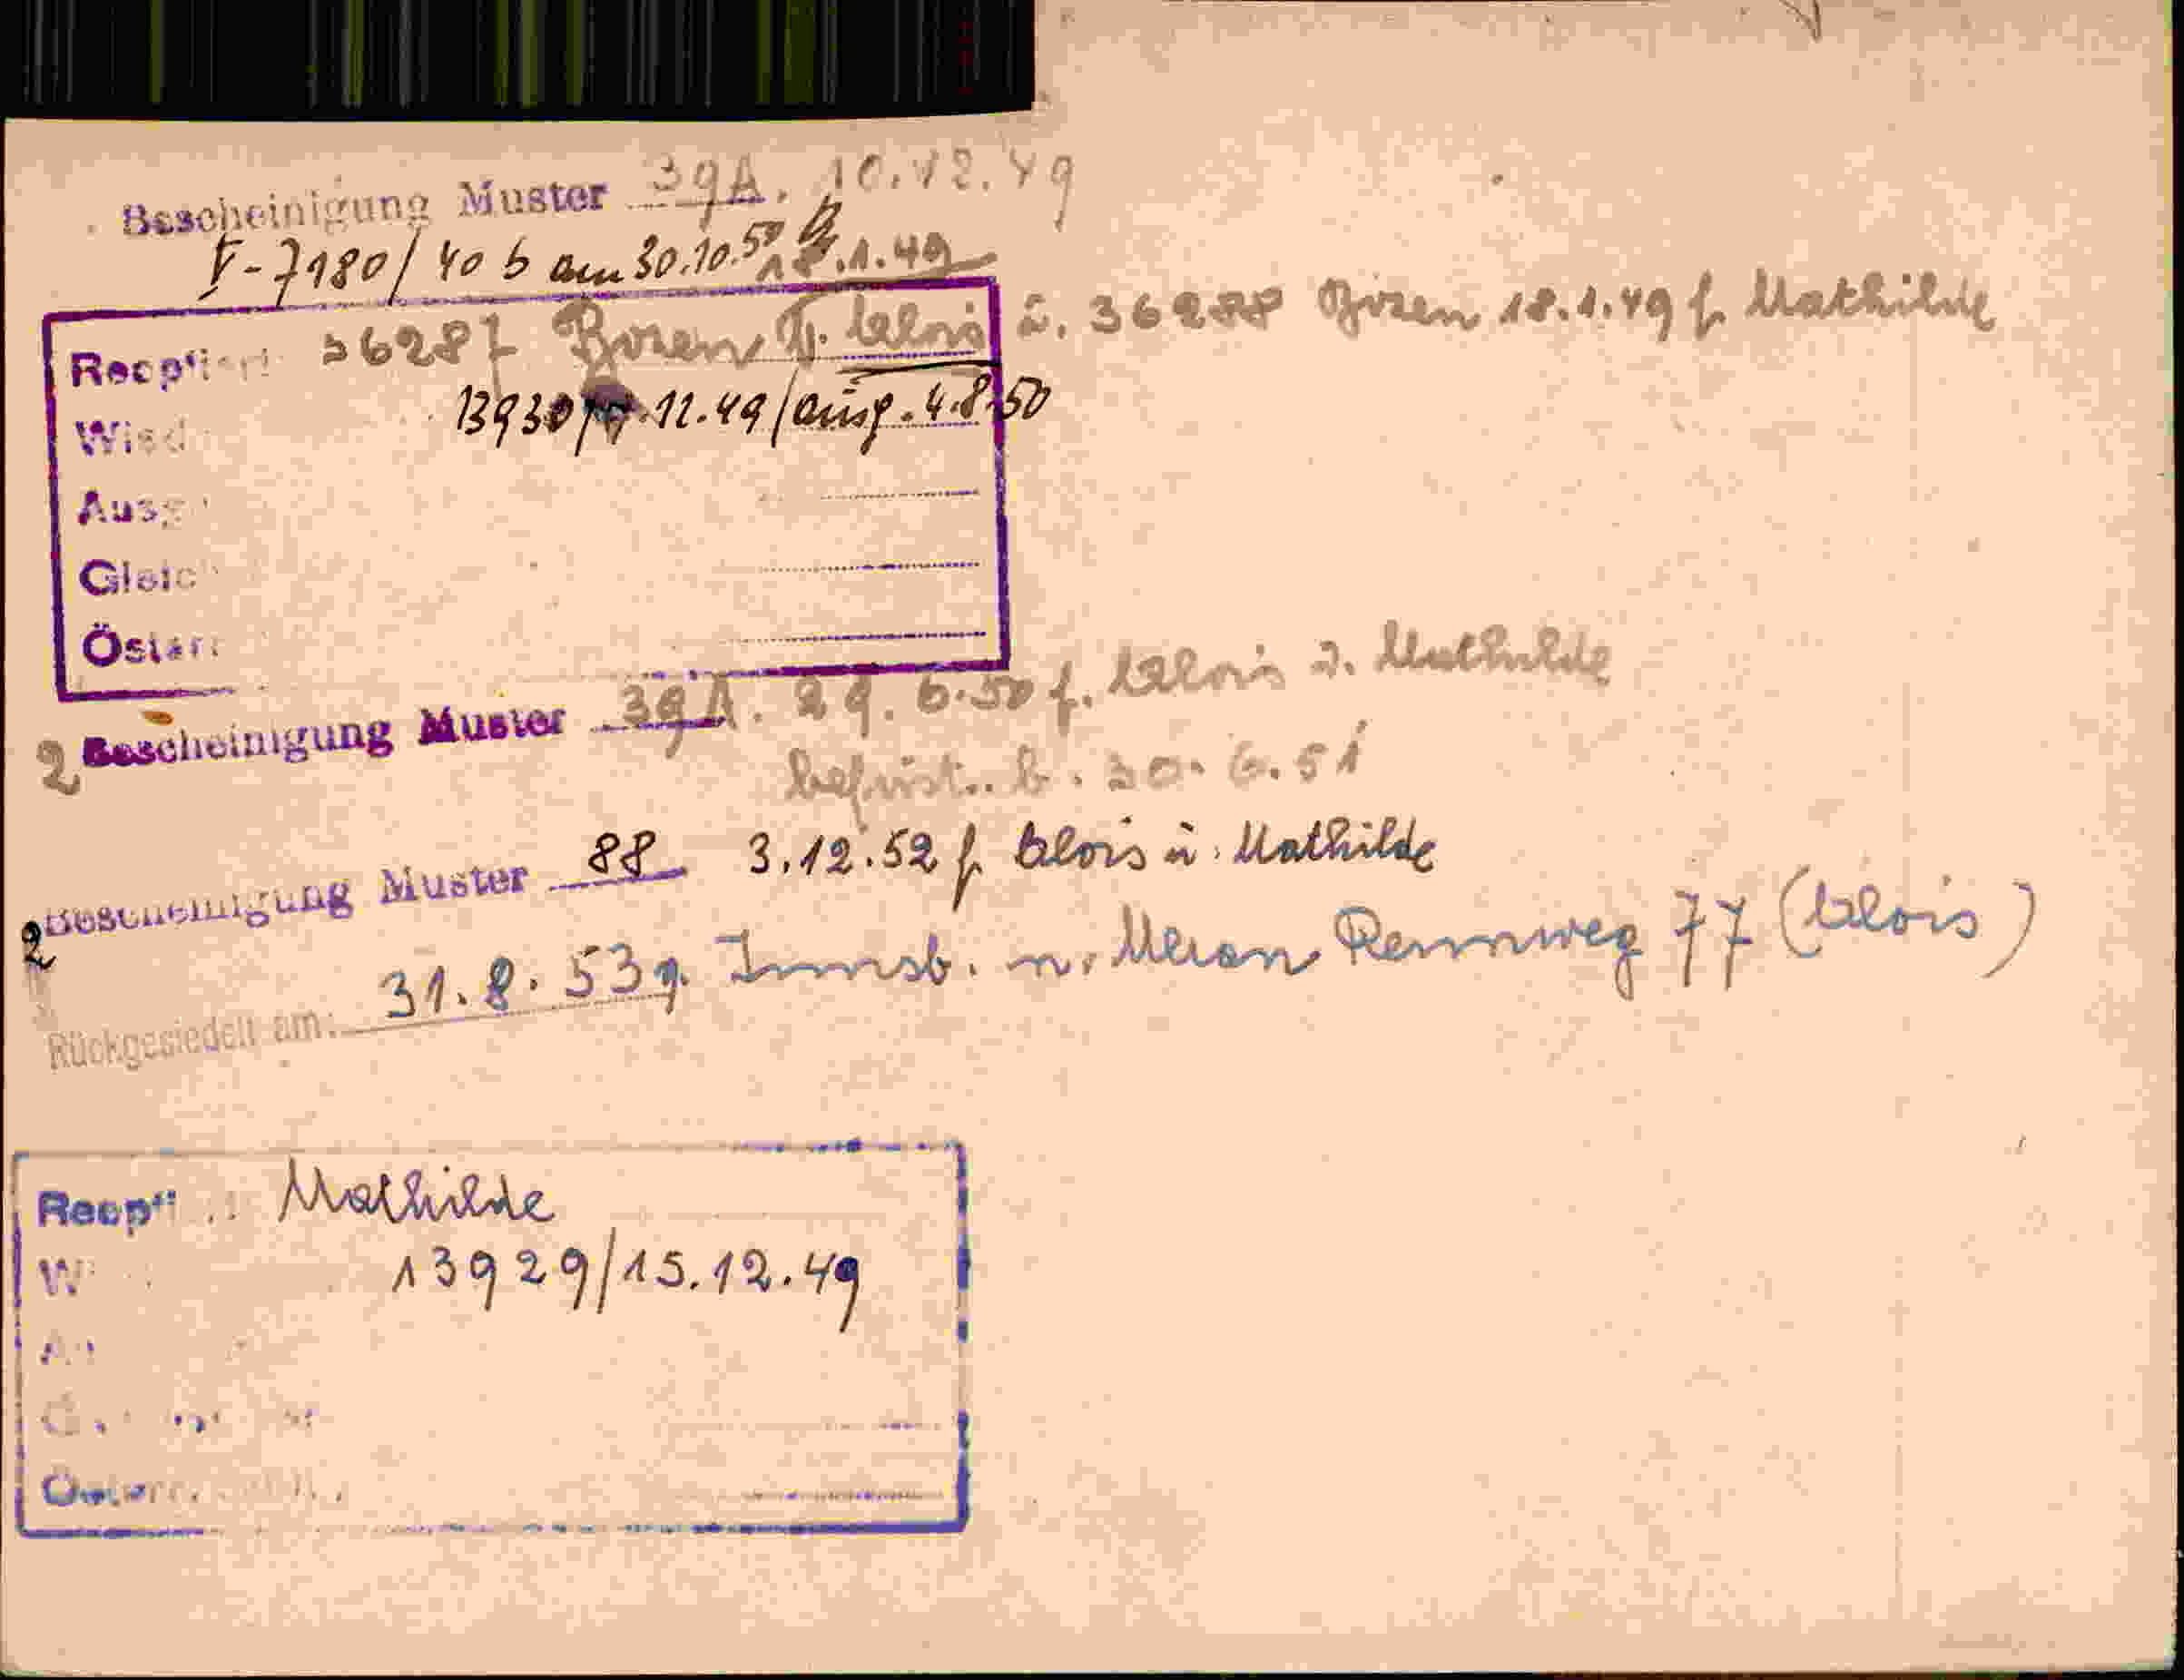 Bescheinigung Muster 39A. 10.12.49
V-7180/40 b am 30.10.50 18.1.49
Reopti 36287 Bozen f. Alois u. 36288 Bozen 18.1.49 f. Mathilde
Wied 13930/ .11.49/ausg. 4.8.50
Ausg
Gleic
Österr
2 Bescheinigung Muster 39A. 29.6.50 f. Alois u. Mathilde
befrist. b. 30.6.51
2 Bescheinigung Muster 88 3.12.52 f. Alois u. Mathilde
Rückgesiedelt am: 31.8.53 g. Innsb. n. Meran Rennweg 77 (Alois)
Reopti Mathilde
W 13929/15.12.49
A
G
Österr